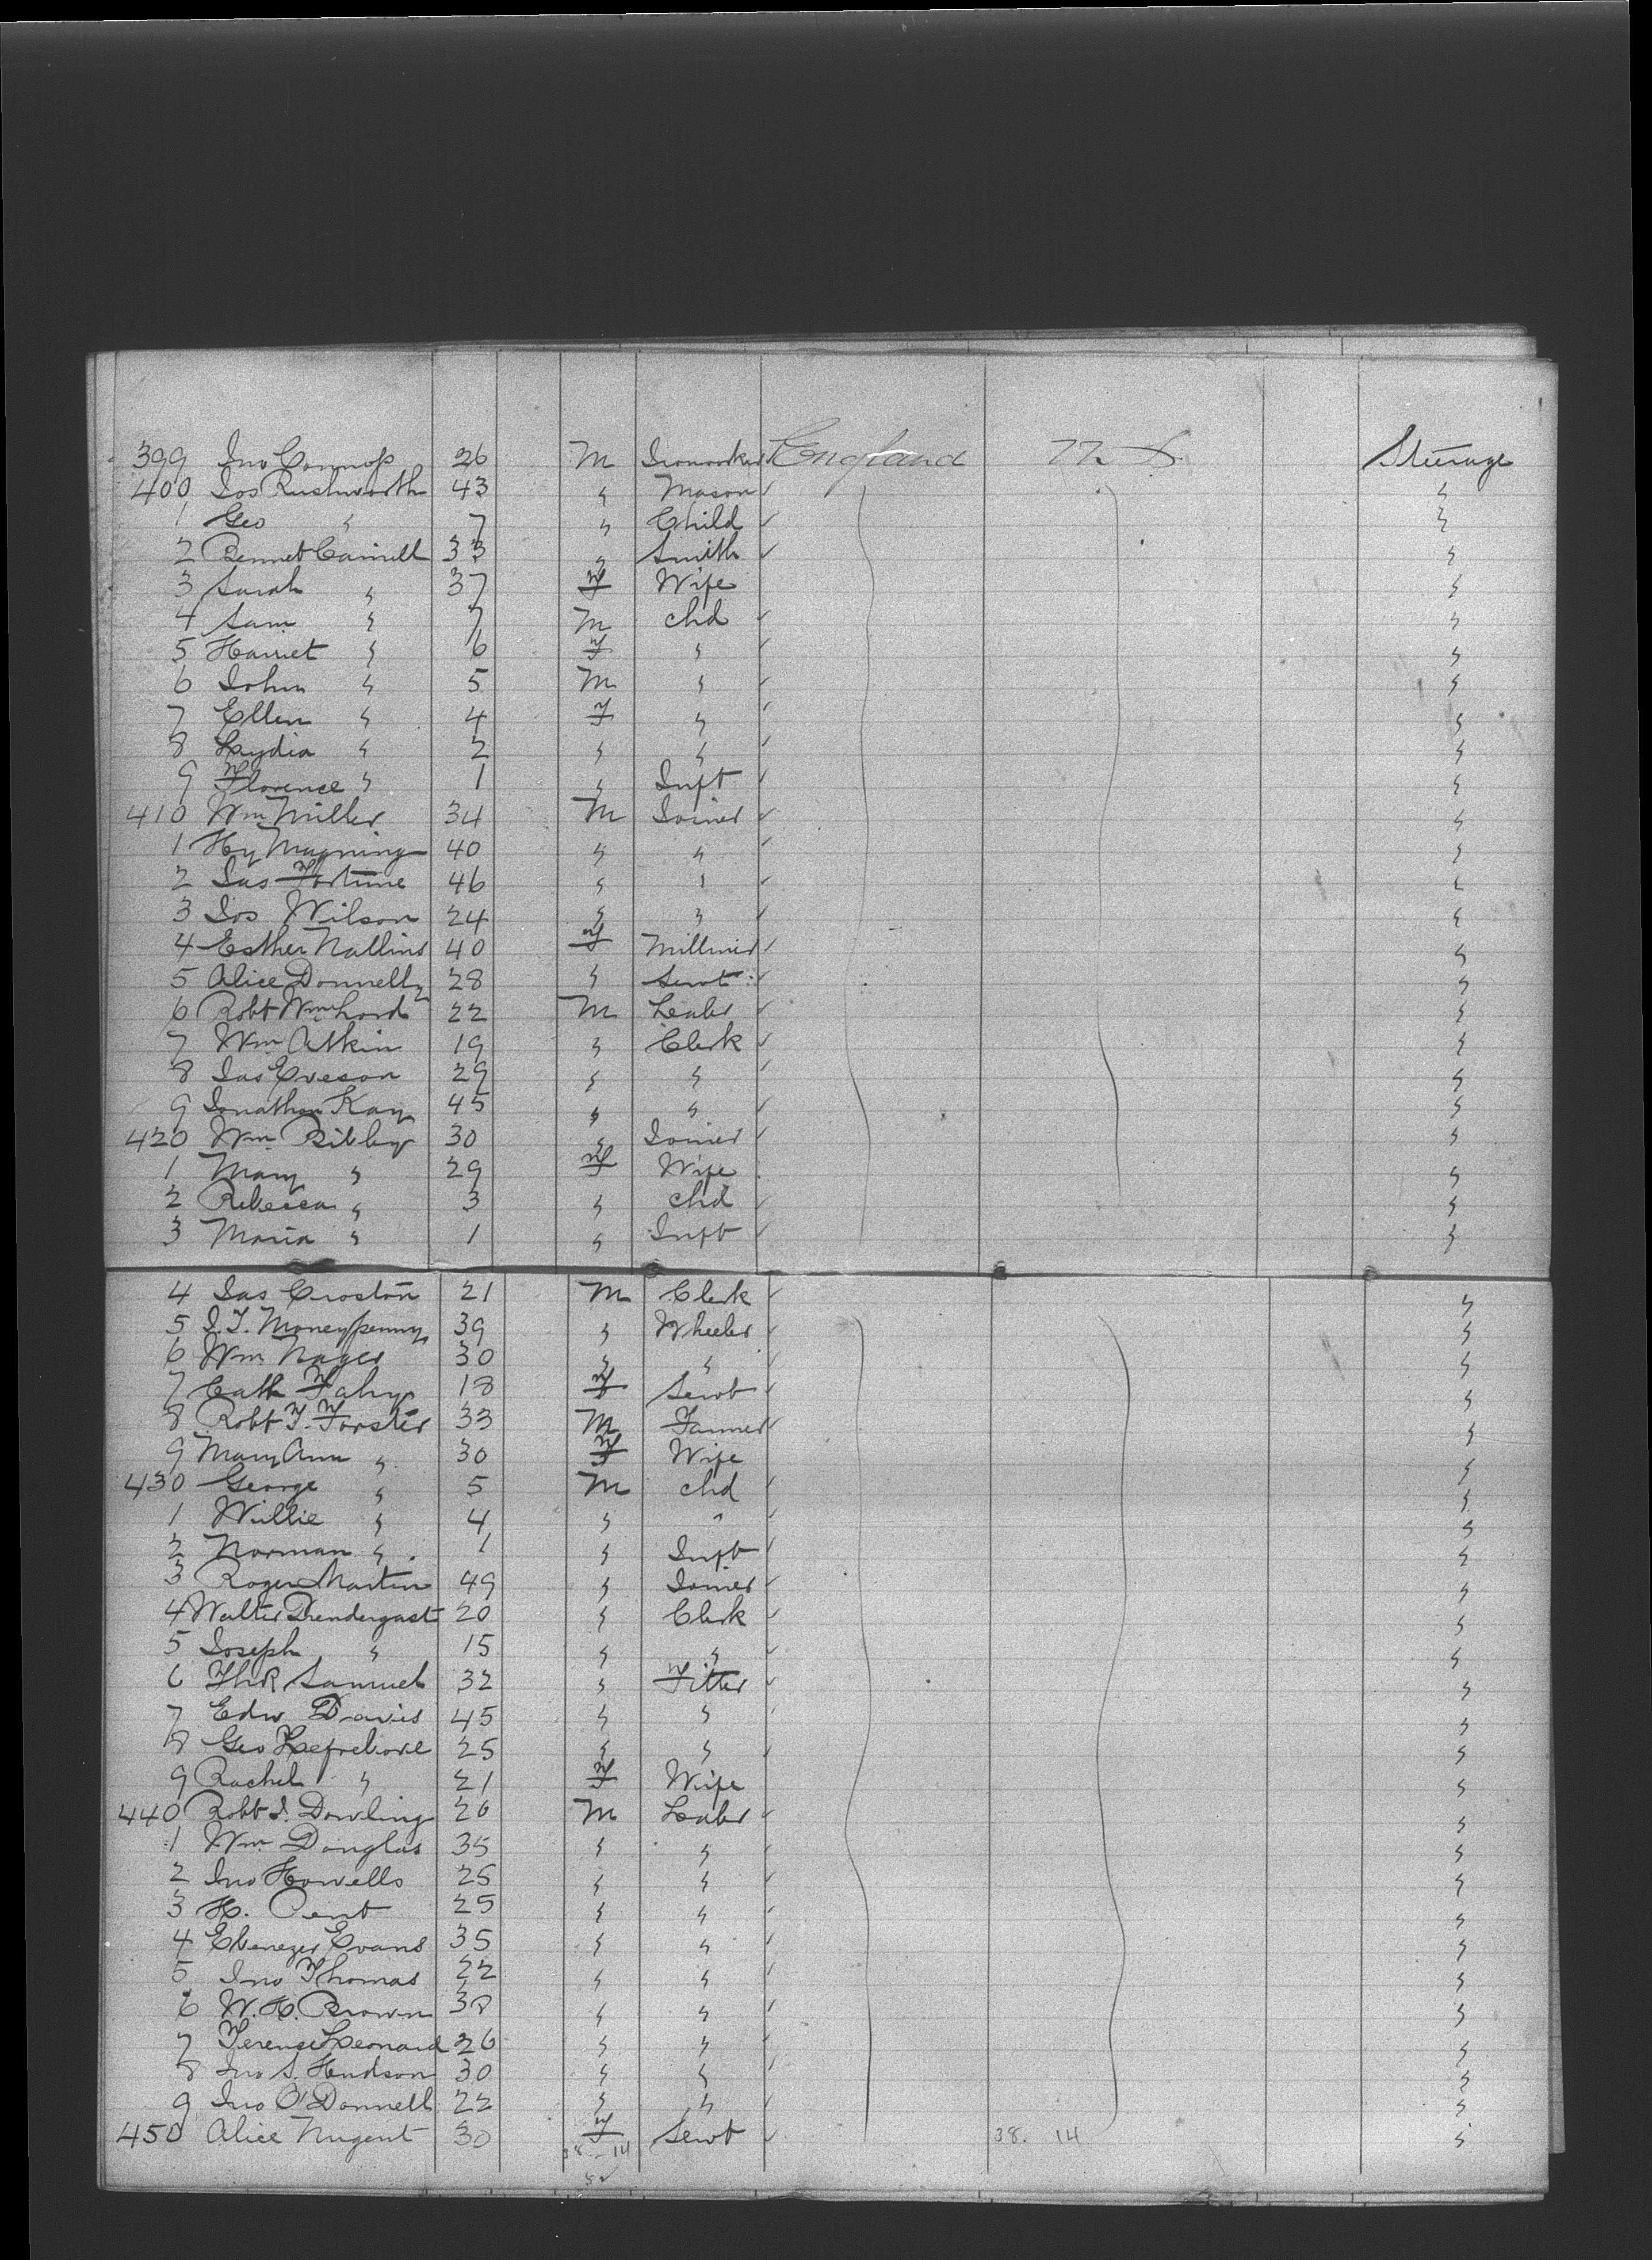 399 Jno Connop 26 M Ironworker England U S Steerage
400 Jos Rushworth 43 " Mason "
1 Geo " 7 " Child "
2 Bennet Cainell 33 " Smith "
3 Sarah " 37 F Wife "
4 Sam " 7 M chd "
5 Harriet " 6 F " "
6 John " 5 M " "
7 Ellen " 4 F " "
8 Lydia " 2 " " "
9 Florence " 1 " Inft "
410 Wm Miller 34 M Joiner "
1 Hy Magning 40 " " "
2 Jas Fortune 46 " " "
3 Jos Wilson 24 " " "
4 Esther Nallins 40 F Milliner "
5 Alice Donnelly 28 " Servt "
6 Robt Wm Lord 22 M Labr "
7 Wm Atkin 19 " Clerk "
8 Jas Eveson 29 " " "
9 Jonathan Kay 45 " " "
420 Wm Bibby 30 " Joiner "
1 Mary " 29 F Wife "
2 Rebecca " 3 " chd "
3 Maria " 1 " Inft "
4 Jas Croston 21 M Clerk "
5 J. T. Moneypenny 39 " Wheeler "
6 Wm Nager 30 " " "
7 Cath Fahy 18 F Servt "
8 Robt T. Forster 33 M Farmer "
9 Mary Ann " 30 F Wife "
430 George " 5 M chd "
1 Willie " 4 " " "
2 Norman " 1 " Inft "
3 Roger Martin 49 " Joiner "
4 Walter Prendergast 20 " Clerk "
5 Joseph " 15 " " "
6 Th R Samuel 32 " Fitter "
7 Edw Davis 45 " " "
8 Geo 25 " " "
9 Rachel " 21 F Wife "
440 Robt J. Dowling 26 M Labr "
1 Wm Douglas 35 " " "
2 Jno Howells 25 " " "
3 H. Pent 25 " " "
4 Ebenezer Evans 35 " " "
5 Jno Thomas 22 " " "
6 W. H. Brown 38 " " "
7 Terence Leonard 26 " " "
8 Jno S. Hudson 30 " " "
9 Jno O'Donnell 22 " " "
450 Alice Nugent 30 F Servt "
38. 14 38. 14